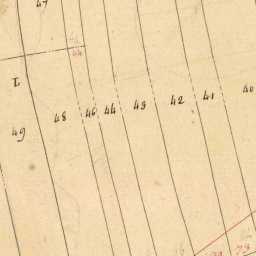 47
L
49 48 46 44 43 42 41 40
73